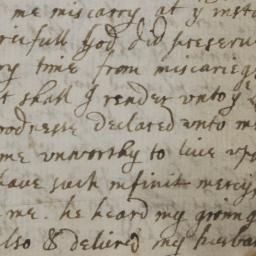 me miscarry at yᵉ
cifull God did preserue
ry time from miscarieg
t shall I render vnto yᵉ
oodnesse declared vnto me
me vnworthy to liue vp
haue such infinit mercy
me. he heard my groning
lso & deliuered my husba